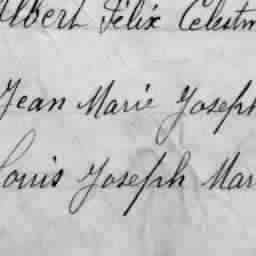 Albert Félix Celestin
Jean Marie Joseph
Louis Joseph Mar